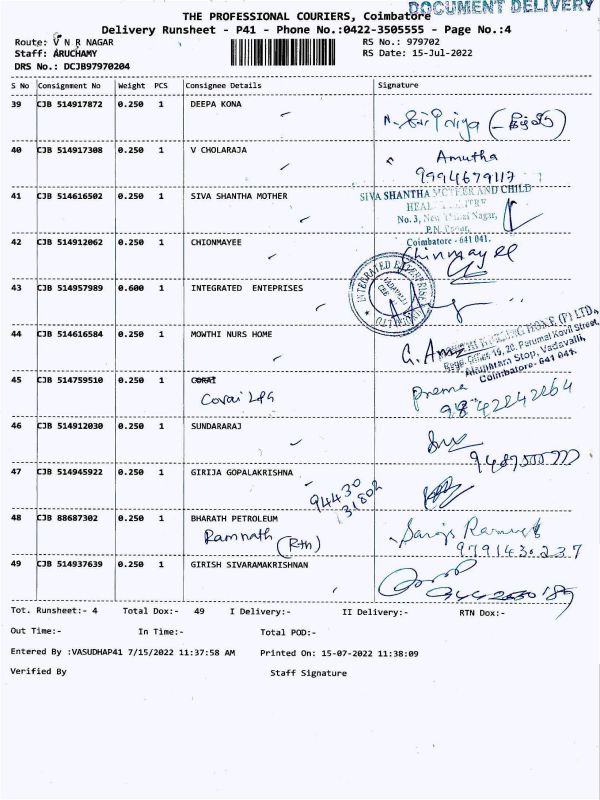 DOCUMENT DELIVERY
THE PROFESSIONAL COURIERS, Coimbatore
Delivery Runsheet - P41 - Phone No.:0422-3505555 - Page No.:4
Route: V N R NAGAR RS No.: 979702
Staff: ARUCHAMY RS Date: 15-Jul-2022
DRS No.: DCJB97970204
S No Consignment No Weight PCS Consignee Details Signature
39 CJB 514917872 0.250 1 DEEPA KONA
40 CJB 514917308 0.250 1 V CHOLARAJA Amutha
9994679117
41 CJB 514616502 0.250 1 SIVA SHANTHA MOTHER SIVA SHANTHA MOTHER AND CHILD
No. 3, Nagar,
Coimbatore - 641 041.
42 CJB 514912062 0.250 1 CHIONMAYEE Chinmayee
43 CJB 514957989 0.600 1 INTEGRATED ENTEPRISES INTEGRATED
44 CJB 514616584 0.250 1 MOWTHI NURS HOME NURSING HOME (P) LTD.,
Rege. Office 19, 20, Perumal Kovil Street,
Stop, Vadavalli,
Coimbatore- 641 041.
45 CJB 514759510 0.250 1 CORAI Prema
Corai LPG 9842242264
46 CJB 514912030 0.250 1 SUNDARARAJ
47 CJB 514945922 0.250 1 GIRIJA GOPALAKRISHNA
94430
31802
48 CJB 88687302 0.250 1 BHARATH PETROLEUM
Ramnath (Rtn) 9791430237
49 CJB 514937639 0.250 1 GIRISH SIVARAMAKRISHNAN
Tot. Runsheet:- 4 Total Dox:- 49 I Delivery:- II Delivery:- RTN Dox:-
Out Time:- In Time:- Total POD:-
Entered By :VASUDHAP41 7/15/2022 11:37:58 AM Printed On: 15-07-2022 11:38:09
Verified By Staff Signature